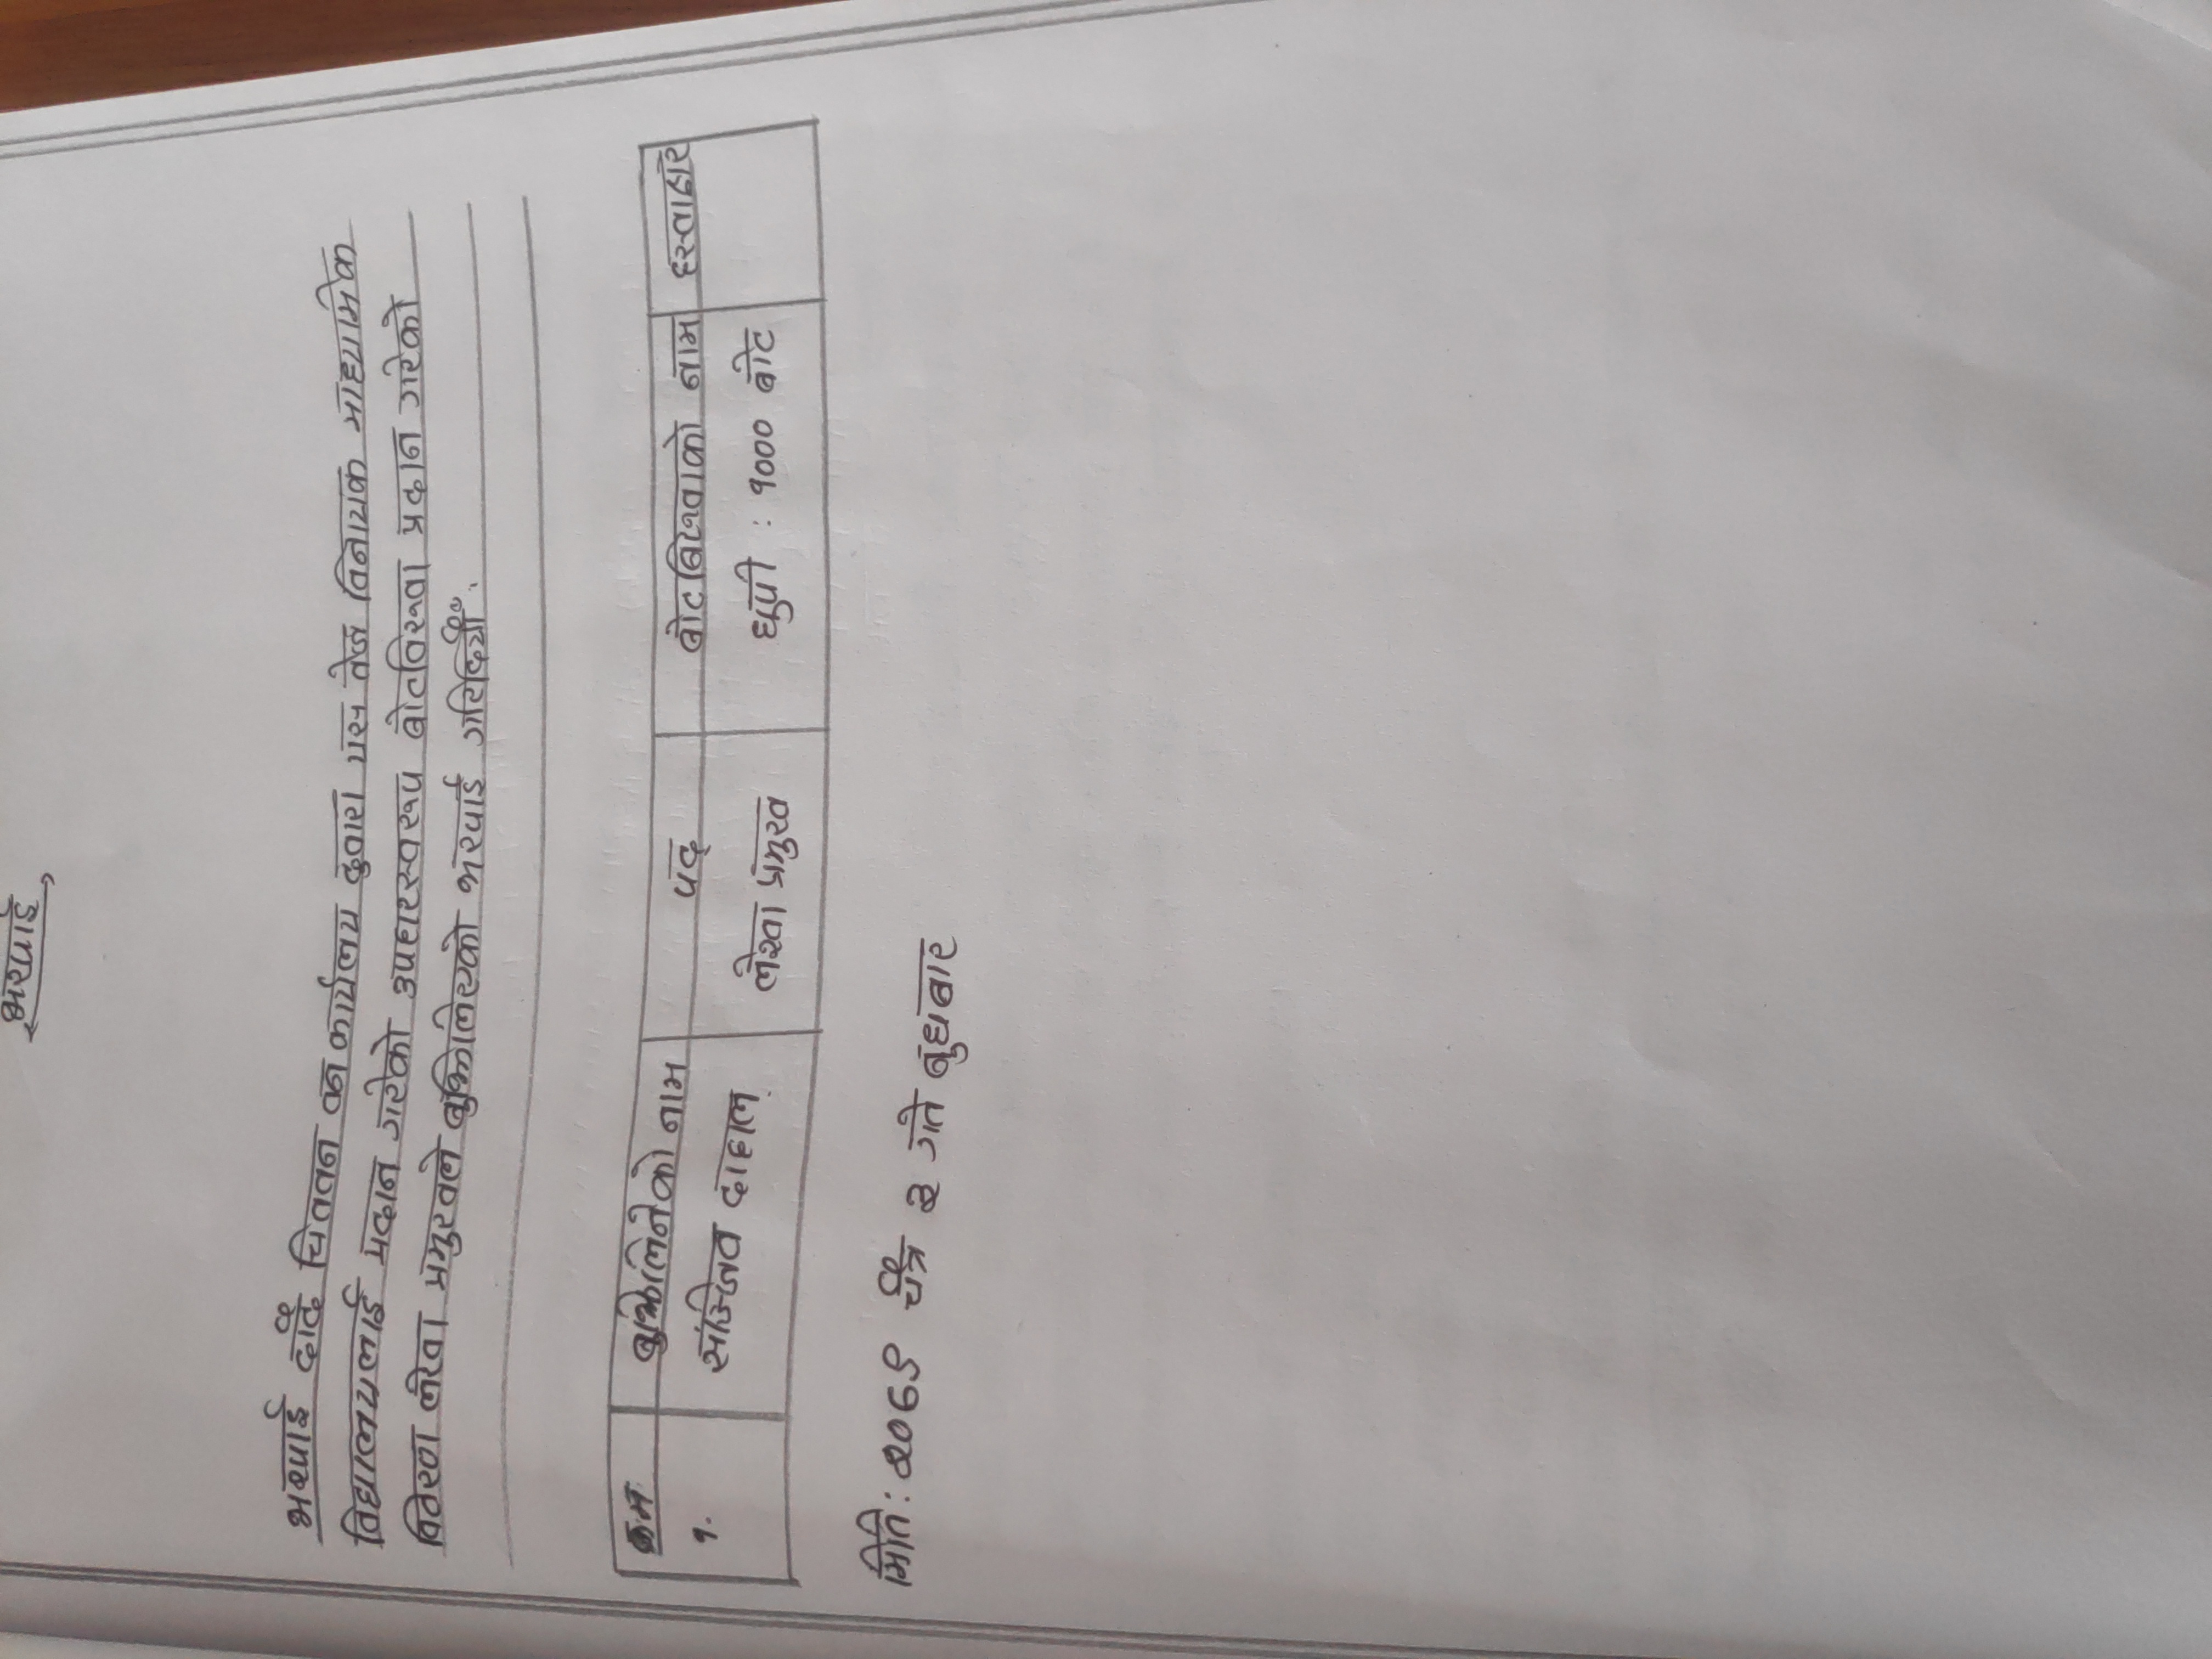 भरपाई
भरपाई दाँदै चितवन वन कार्यलय दुवारा यस तेज विनायक माध्यामिक
विद्यालयलाई प्रदान गरेको उपहारस्वरूप बोटविरूवा प्रदान गरेको
वितरण लेखा प्रमुखले बुझिलिएको भरपाई गरिदियौँ.
क्र.म. बुझिलिनेको नाम पद् बोटबिरुवाको नाम हस्ताक्षर
१. सञ्जिव दाहाल लेखा प्रमुख धुपी : १००० बोट
मिति: २०७९ चैत्र ३ गते बुधबार